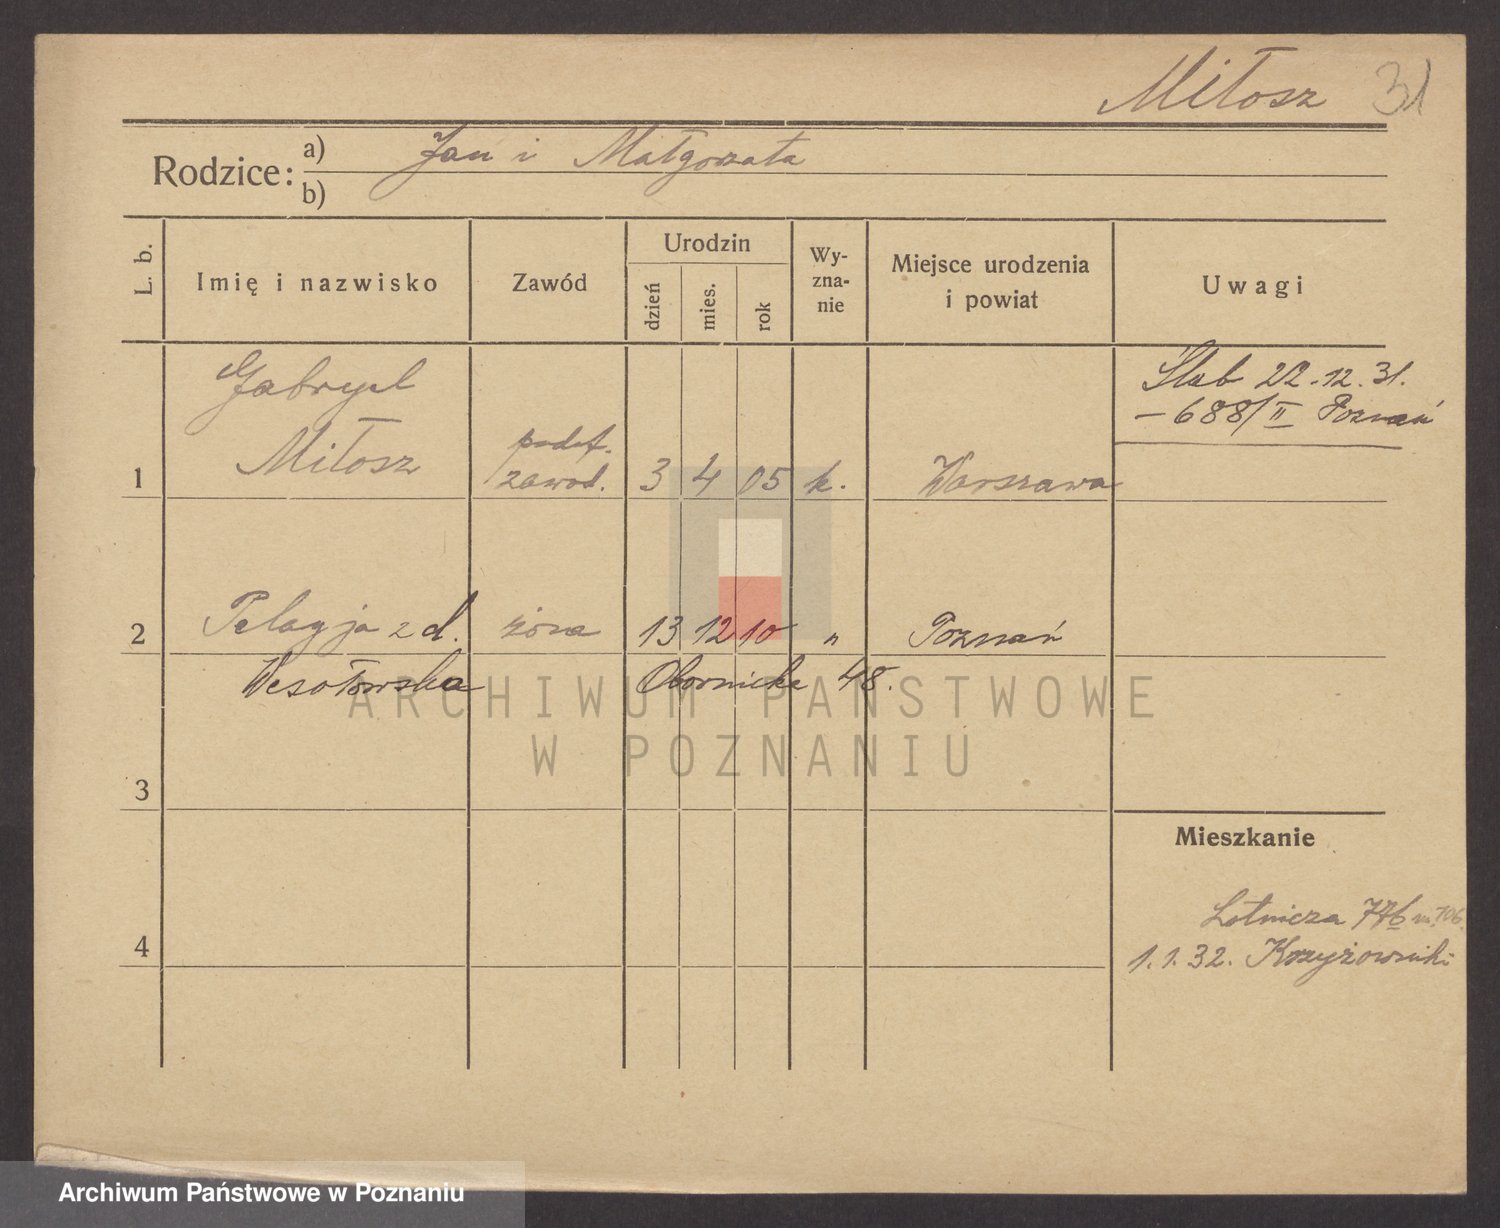 Miłosz 31
Rodzice: a) Jan i Małgorzata
b)
L. b.
Imię i nazwisko
Zawód
Urodzin
dzień
mies.
rok
Wy-
zna-
nie
Miejsce urodzenia
i powiat
Uwagi
Gabryel
Miłosz
1
podof.
zawod.
3 4 05 k. Warszawa
Ślub 22.12.31.
– 688/II Poznań
2 Pelagja z d. żona 13 12 10 " Poznań
Wesołowska Obornicka 48.
3
4
Mieszkanie
Lotnicza 77b m. 106.
1.1.32. Krzyżowniki
ARCHIWUM PAŃSTWOWE
W POZNANIU
Archiwum Państwowe w Poznaniu